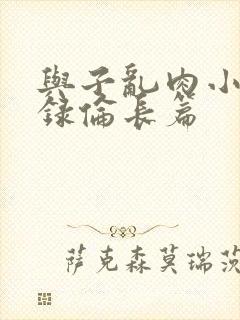 與子亂肉小
錄倫長篇
萨克森莫瑞茨